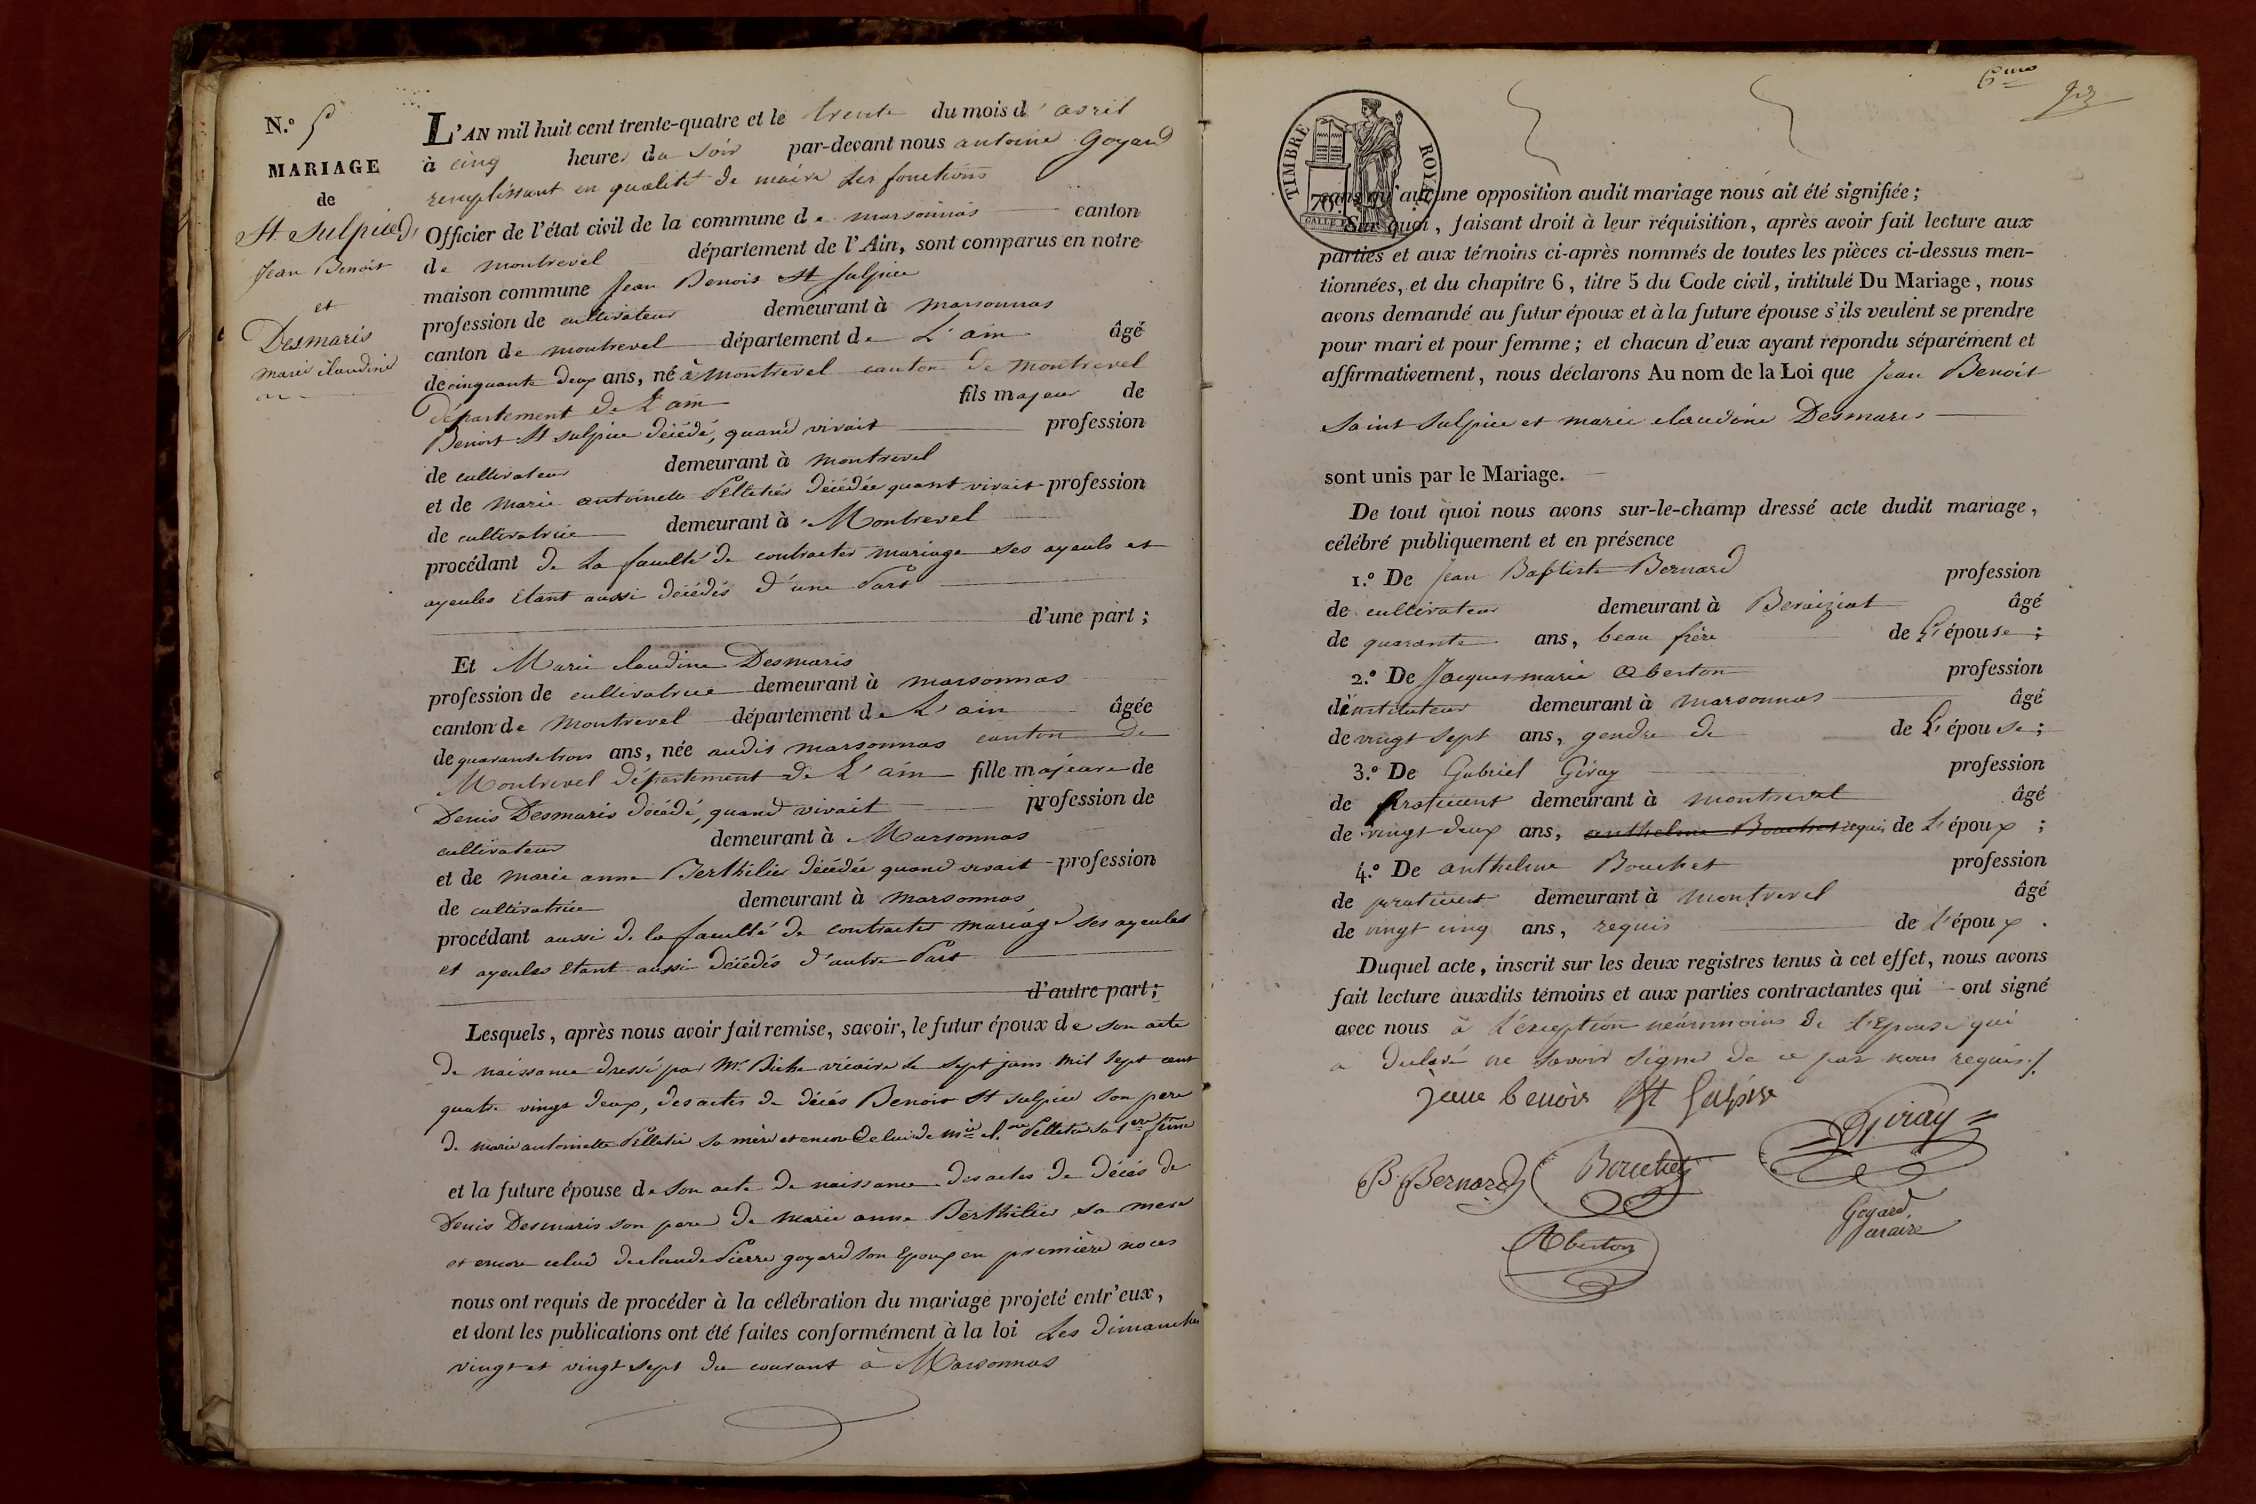 N.° 5
MARIAGE
de
St Sulpice
Jean Benoit
et
Desmaris
marie claudine
L'AN mil huit cent trente-quatre et le trente du mois d'avril
à cinq heures du soir par-devant nous antoine Goyard
remplissant en qualité de maire les fonctions
Officier de l'état civil de la commune de marsonnas canton
de montrevel département de l'Ain, sont comparus en notre
maison commune Jean Benoit St Sulpice
profession de cultivateur demeurant à marsonnas
canton de montrevel département de L'ain âgé
de cinquante deux ans, né à montrevel canton de montrevel
département de L'ain fils majeur de
Benoit St sulpice décédé, quand vivait profession
de cultivateur demeurant à montrevel
et de marie antoinette Pelletier décédée quant vivait profession
de cultivatrice demeurant à Montrevel
procédant de la faculté de contracter mariage ses ayeuls et
ayeules étant aussi décédés d'une Part
d'une part ;
Et Marie claudine Desmaris
profession de cultivatrice demeurant à marsonnas
canton de montrevel département de L'ain âgée
de quarante trois ans, née audit marsonnas canton de
Montrevel département de L'ain fille majeure de
Denis Desmaris décédé, quand vivait profession de
cultivateur demeurant à Marsonnas
et de marie anne Berthilier décédée quand vivait profession
de cultivatrice demeurant à marsonnas
procédant aussi de la faculté de contracter mariage ses ayeules
et ayeules étant aussi décédés d'autre Part
d'autre part ;
Lesquels, après nous avoir fait remise, savoir, le futur époux de son acte
de naissance dressé par Mr Biche vicaire le sept juin mil sept cent
quatre vingt deux, des actes de décès Benoit St sulpice son pere
de marie antoinette Pelletier sa mère et encore celui de Pelletier sa 1ere feme
et la future épouse de son acte de naissance des actes de décès de
Denis Desmaris son pere de marie anne Berthilier sa mere
et encore celui de claude Pierre goyard son Epoux en première noces
nous ont requis de procéder à la célébration du mariage projeté entr'eux,
et dont les publications ont été faites conformément à la loi les dimanches
vingt et vingt sept du courant à Marsonnas
TIMBRE ROYAL
70
sans qu'aucune opposition audit mariage nous ait été signifiée ;
Sur quoi, faisant droit à leur réquisition, après avoir fait lecture aux
parties et aux témoins ci-après nommés de toutes les pièces ci-dessus men-
tionnées, et du chapitre 6, titre 5 du Code civil, intitulé Du Mariage, nous
avons demandé au futur époux et à la future épouse s'ils veulent se prendre
pour mari et pour femme ; et chacun d'eux ayant répondu séparément et
affirmativement, nous déclarons Au nom de la Loi que Jean Benoit
Saint Sulpice et marie claudine Desmaris
sont unis par le Mariage.
De tout quoi nous avons sur-le-champ dressé acte dudit mariage,
célébré publiquement et en présence
1.° De Jean Baptiste Bernard profession
de cultivateur demeurant à Beraiziat âgé
de quarante ans, beau frère de L'épouse ;
2.° De Jacques marie Aberton profession
d'instituteur demeurant à marsonnas âgé
de vingt sept ans, gendre de de L'épouse ;
3.° De Gabriel Giray profession
de praticient demeurant à montrevel âgé
de vingt deux ans, anthelme Bouchet requis de L'époux ;
4.° De anthelme Bouchet profession
de praticient demeurant à montrevel âgé
de vingt cinq ans, requis de L'époux .
Duquel acte, inscrit sur les deux registres tenus à cet effet, nous avons
fait lecture auxdits témoins et aux parties contractantes qui ont signé
avec nous à l'exception néanmoins de l'Epouse qui
a déclaré ne savoir signer de ce par nous requis
jean benoit St Sulpice
Giray
B Bernard
Bouchet
Goyard
maire
Aberton